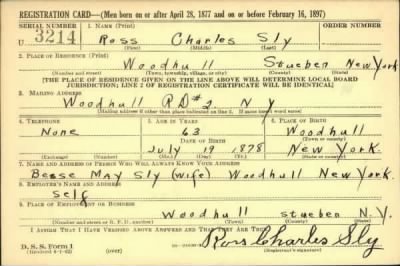 REGISTRATION CARD—(Men born on or after April 28, 1877 and on or before February 16, 1897)
SERIAL NUMBER 1. NAME (Print) ORDER NUMBER
U 3214 Ross Charles Sly
(First) (Middle) (Last)
2. PLACE OF RESIDENCE (Print)
Woodhull Stueben New York
(Number and street) (Town, township, village, or city) (County) (State)
[THE PLACE OF RESIDENCE GIVEN ON THE LINE ABOVE WILL DETERMINE LOCAL BOARD
JURISDICTION; LINE 2 OF REGISTRATION CERTIFICATE WILL BE IDENTICAL]
3. MAILING ADDRESS
Woodhull RD#2 N Y
[Mailing address if other than place indicated on line 2. If same insert word same]
4. TELEPHONE 5. AGE IN YEARS 6. PLACE OF BIRTH
None 63 Woodhull
DATE OF BIRTH (Town or county)
July 19 1878 New York.
(Exchange) (Number) (Mo.) (Day) (Yr.) (State or country)
7. NAME AND ADDRESS OF PERSON WHO WILL ALWAYS KNOW YOUR ADDRESS
Besse May Sly (wife) Woodhull New York.
8. EMPLOYER'S NAME AND ADDRESS
Self
9. PLACE OF EMPLOYMENT OR BUSINESS
Woodhull stueben N.Y.
(Number and street or R. F. D. number) (Town) (County) (State)
I AFFIRM THAT I HAVE VERIFIED ABOVE ANSWERS AND THAT THEY ARE TRUE.
D. S. S. Form 1 Ross Charles Sly
(Revised 4-1-42) (over) (Registrant's signature)